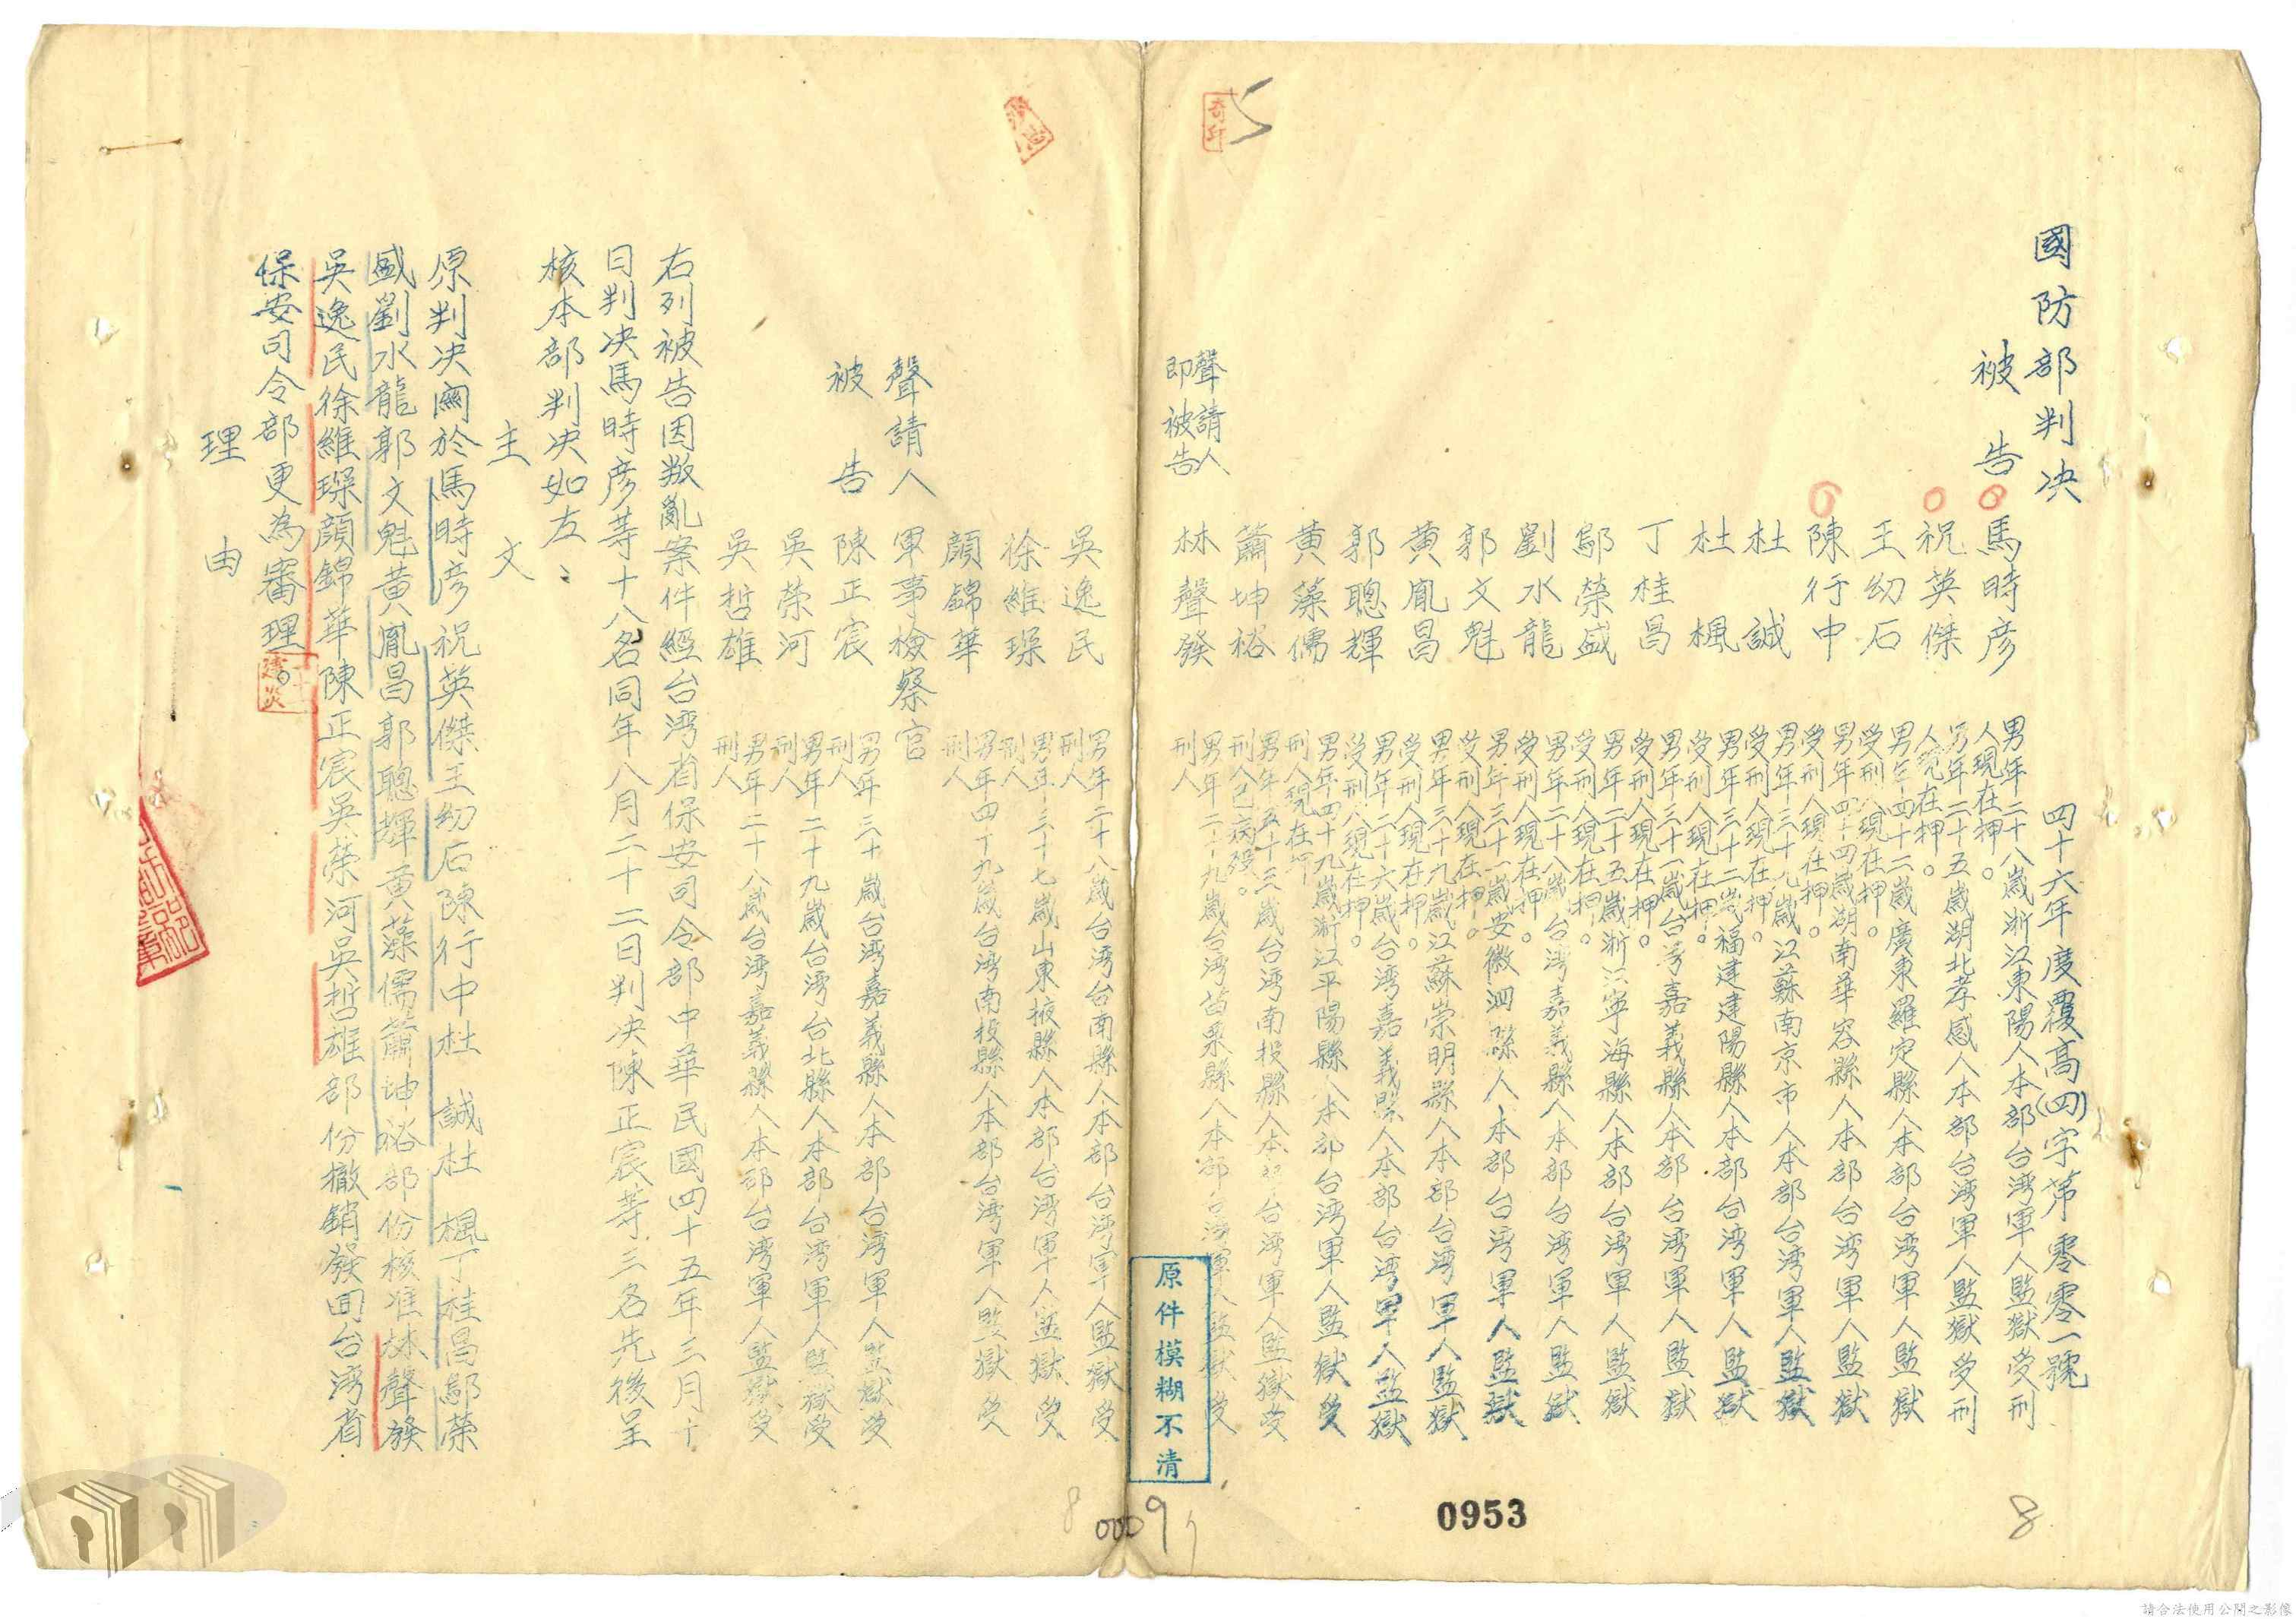 國防部判決
四十六年度覆高(四)字第零零一號
被告
馬時彥
男年二十八歲浙江東陽人本部台湾軍人監獄受刑
人現在押。
祝英傑
男年二十五歲湖北孝感人本部台湾軍人監獄受刑
人現在押。
王幼石
男年四十二歲廣東羅定縣人本部台湾軍人監獄
受刑人現在押。
陳行中
男年四十四歲湖南華容縣人本部台湾軍人監獄
受刑人現在押。
杜誠
男年三十九歲江蘇南京市人本部台湾軍人監獄
受刑人現在押。
杜楓
男年三十二歲福建建陽縣人本部台湾軍人監獄
受刑人現在押。
丁桂昌
男年三十一歲台湾嘉義縣人本部台湾軍人監獄
受刑人現在押。
鄔榮盛
男年二十五歲浙江寧海縣人本部台湾軍人監獄
受刑人現在押。
劉水龍
男年二十八歲台湾嘉義縣人本部台湾軍人監獄
受刑人現在押。
郭文魁
男年三十一歲安徽泗縣人本部台湾軍人監獄
受刑人現在押。
黃胤昌
男年三十九歲江蘇崇明縣人本部台湾軍人監獄
受刑人現在押。
郭聰輝
男年二十六歲台湾嘉義縣人本部台湾軍人監獄
受刑人現在押。
黃藻儒
男年四十九歲浙江平陽縣人本部台湾軍人監獄受
刑人現在押
蕭坤裕
男年五十三歲台湾南投縣人本部台湾軍人監獄受
刑人已病殁。
聲請人
即被告
林聲發
男年二十九歲台湾苗栗縣人本部台湾軍人監獄受
刑人
吳逸民
男年二十八歲台湾台南縣人本部台湾軍人監獄受
刑人
徐維琛
男年三十七歲山東掖縣人本部台湾軍人監獄受
刑人
顏錦華
男年四十九歲台湾南投縣人本部台湾軍人監獄受
刑人
聲請人 軍事檢察官
被告
陳正宸
男年三十歲台湾嘉義縣人本部台湾軍人監獄受
刑人
吳榮河
男年二十九歲台湾台北縣人本部台湾軍人監獄受
刑人
吳哲雄
男年二十八歲台湾嘉義縣人本部台湾軍人監獄受
刑人
右列被告因叛亂案件經台湾省保安司令部中華民國四十五年三月十
日判決馬時彥等十八名同年八月二十二日判決陳正宸等三名先後呈
核本部判決如左：
主文
原判決關於馬時彥祝英傑王幼石陳行中杜誠杜楓丁桂昌鄔榮
盛劉水龍郭文魁黃胤昌郭聰輝黃藻儒蕭坤裕部份核准林聲發
吳逸民徐維琛顏錦華陳正宸吳榮河吳哲雄部份撤銷發回台湾省
保安司令部更為審理。
理由
原件模糊不清
0953
8
0009
請合法使用公開之影像